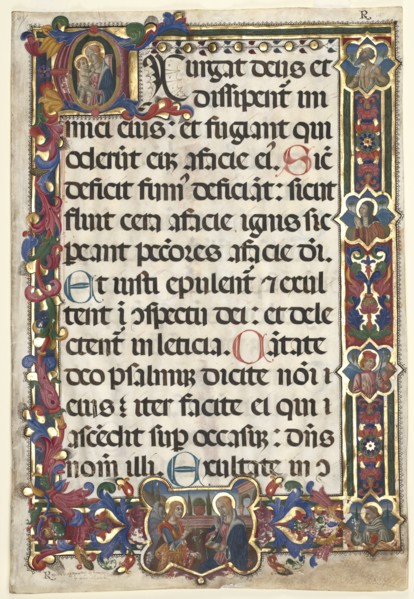 R
Exurgat deus et
dissipent̄ ini
mici eius: et fugiant qui
oderūt eū afacie ei᾽. Sic̄
deficit fum᾽ deficiāt: sicut
fluit cera afacie ignis sic
peant pecc̄ores afacie dī.
Et iusti epulent̄ ⁊ exul
tent ī ɔspectu dei: et dele
ctent̄ in leticia. Cātate
deo psalmuꝫ dicite nōi i
eius: iter facite ei qui a
ascēdit sup occasuꝫ: dn̄s
nom̄ illi. Exultate in ɔ
R